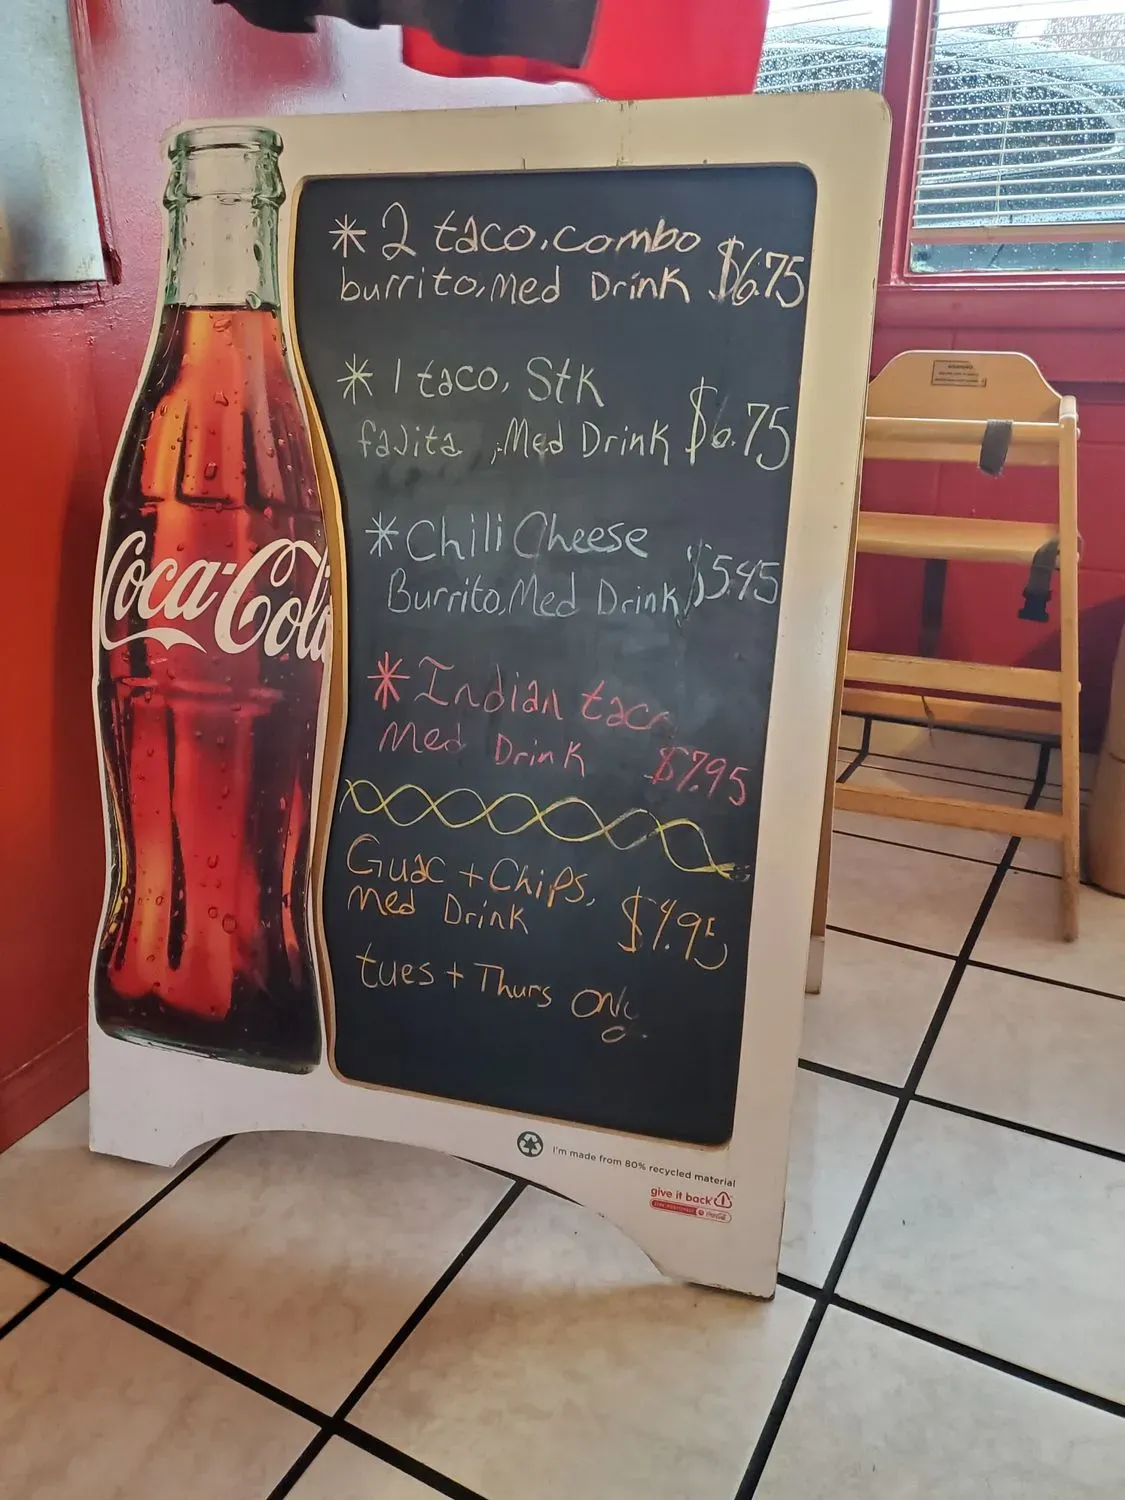 Coca-Cola
* 2 taco, combo
burrito, Med Drink $6.75
* 1 taco, Stk
fajita, Med Drink $6.75
* Chili Cheese
Burrito, Med Drink $5.45
* Indian taco
Med Drink $7.95
Guac + Chips,
Med Drink $4.95
tues + Thurs Only.
I'm made from 80% recycled material
give it back